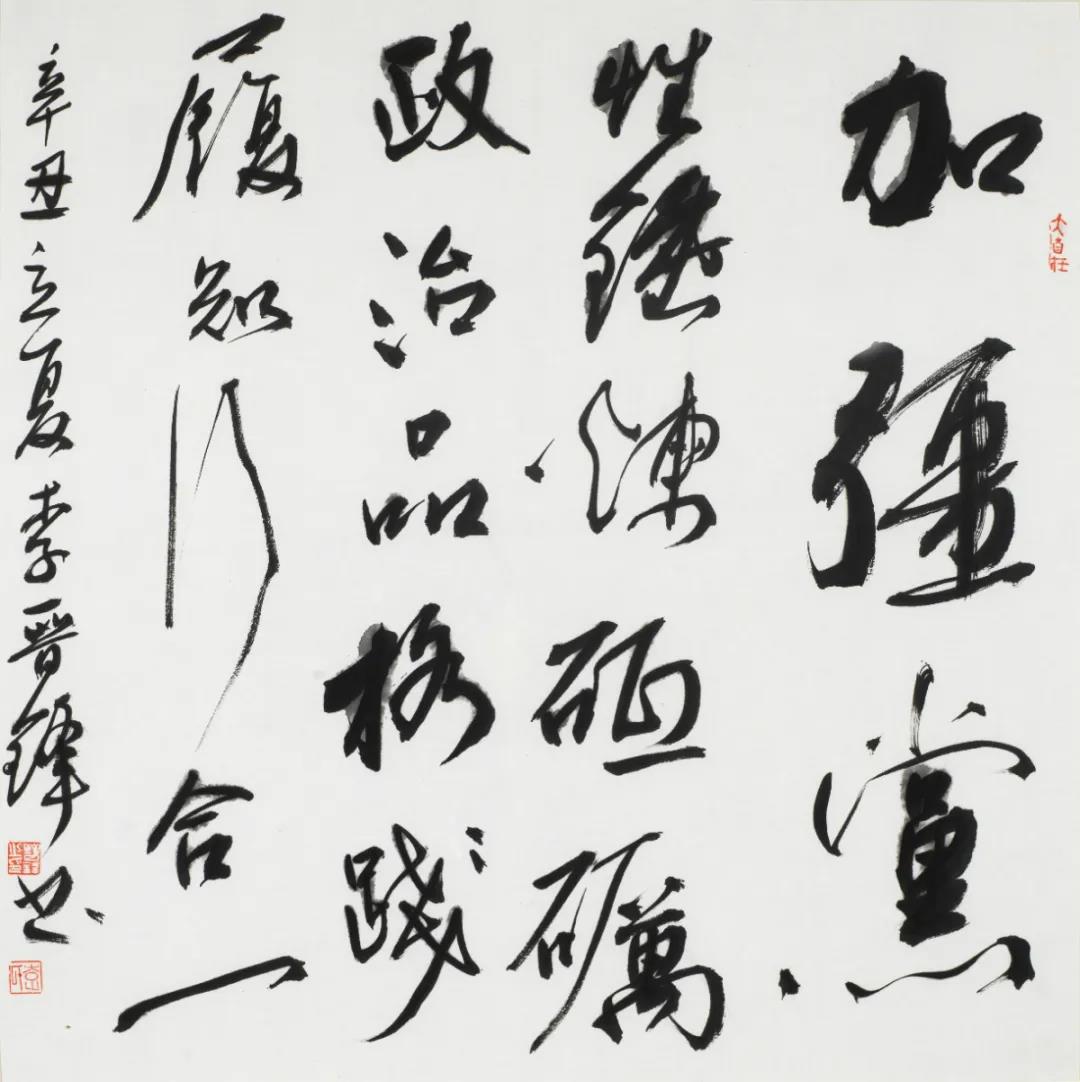 大自在
加彊黨
性鍛煉砥礪
政治品格踐
履知行合一
辛丑立夏李晋鋒书